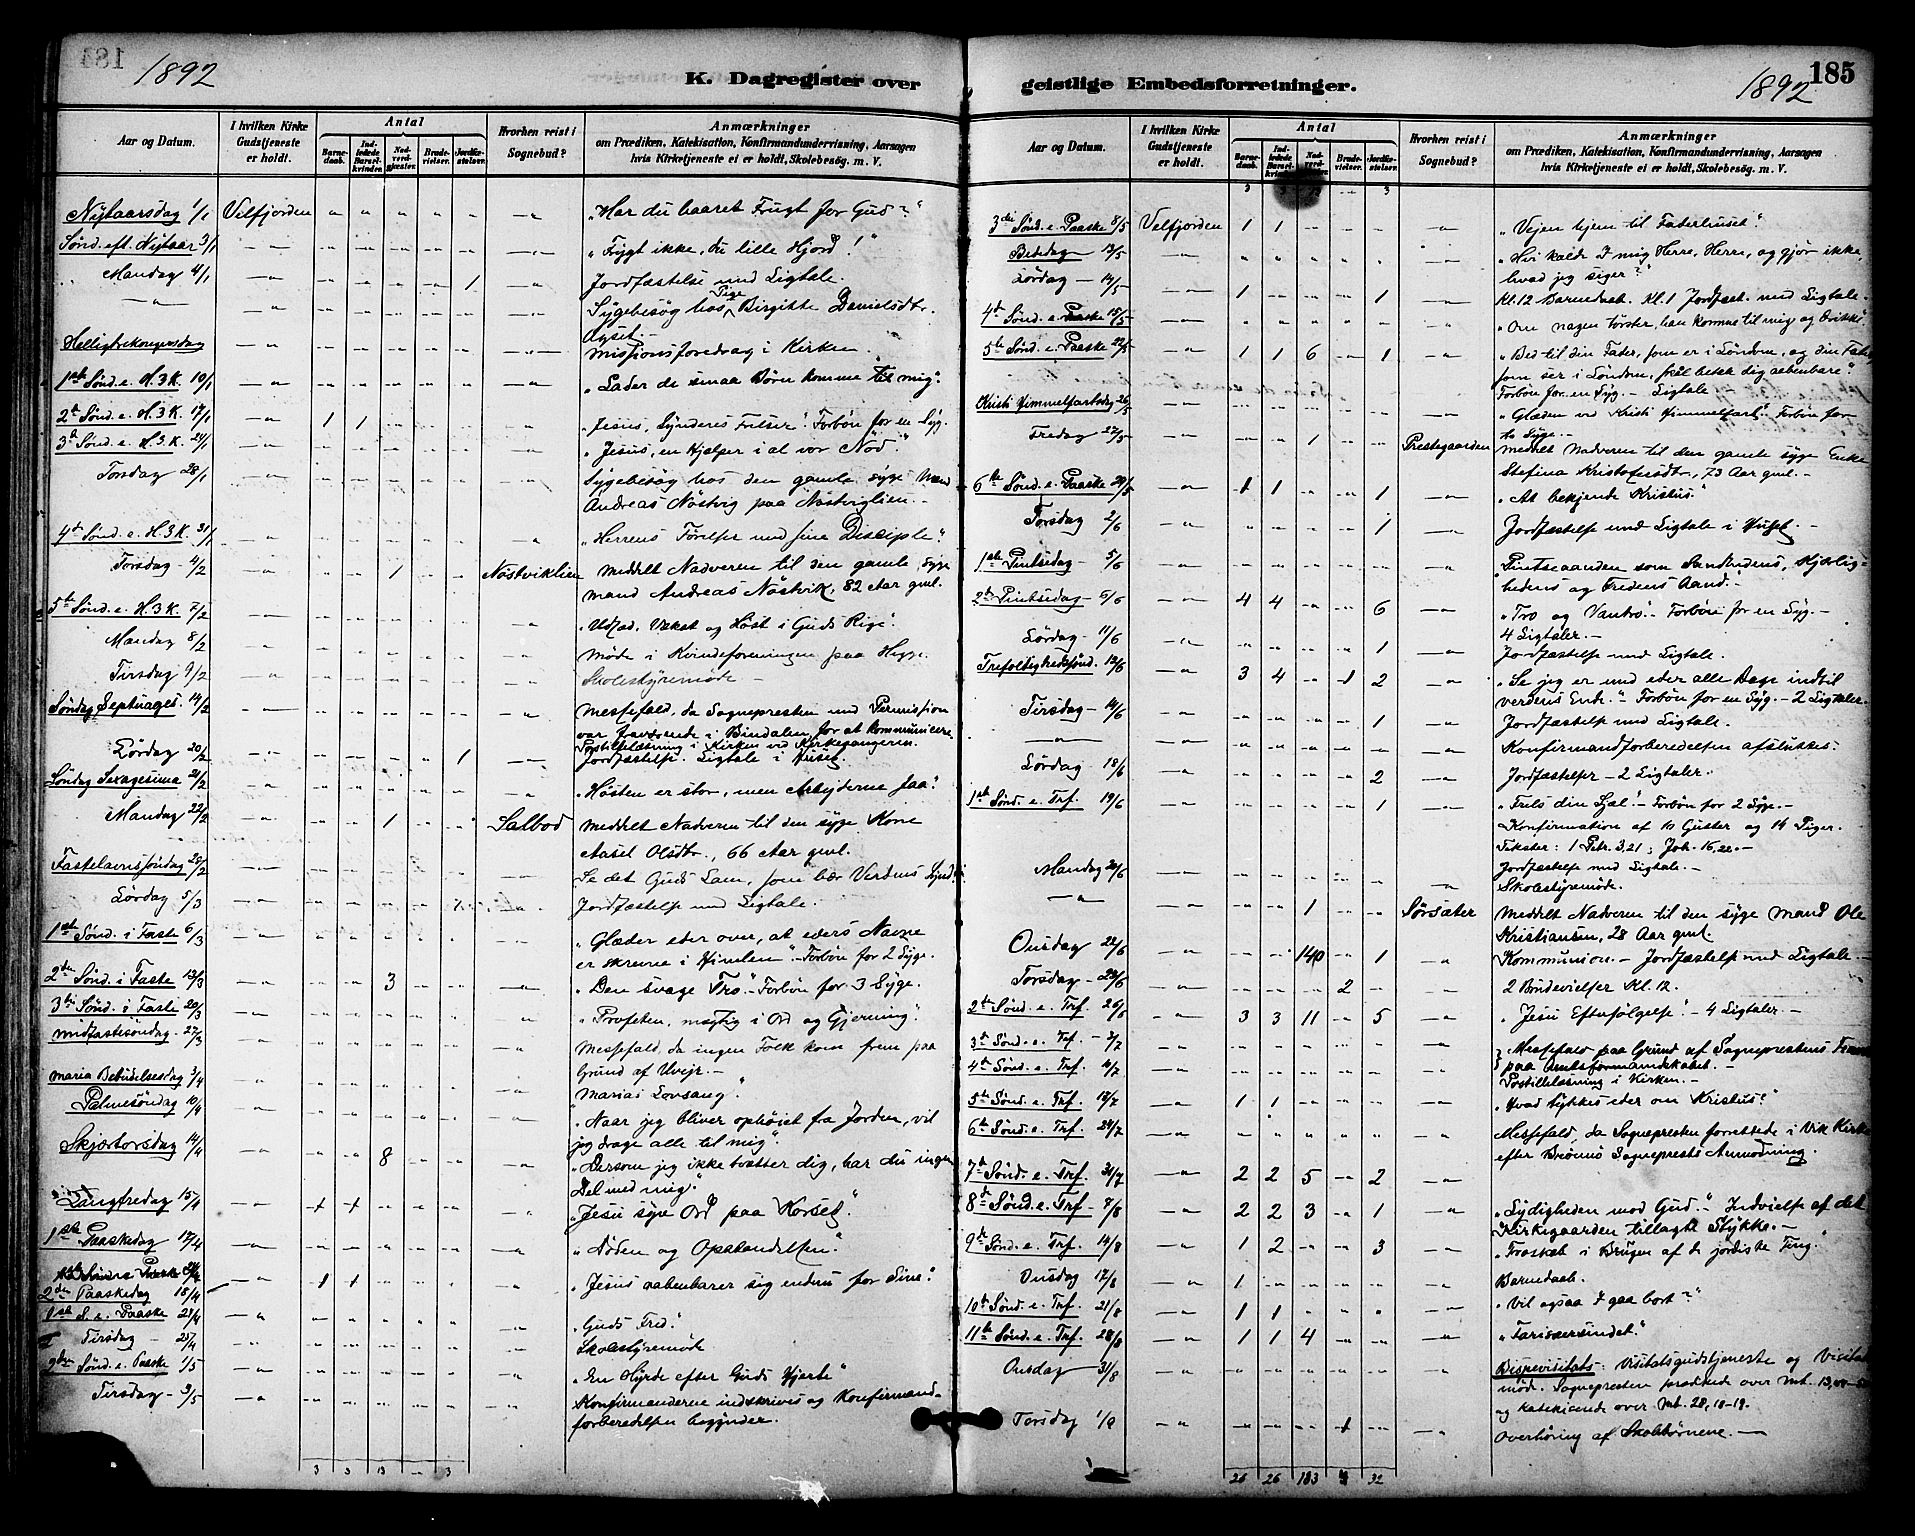 1892
K. Dagregister over
Aar og Datum. I hvilken Kirke Gudstjeneste er holdt. Antal Barnedaab. Indledede Barselkvinder. Nadverdgjæster. Brudevielser. Jordfæstelser. Hvorhen reist i Sognebud? Anmærkninger om Prædiken, Katekisation, Konfirmandundervisning, Aarsagen hvis Kirketjeneste ei er holdt, Skolebesøg. m. V.
Nytaarsdag 1/1 Velfjorden „Har du baaret Frugt for Gud?“
Sønd. eft. Nytaar 3/1 „Frygt ikke, du lille Hjord!“
Mandag 4/1 1 Jordfæstelse med Ligtale.
Sygebesøg hos Pige Birgitte Danielsdtr.
Helligtrekongersdag Missionsforedrag i Kirken
1ste Sønd. e. H.3.K. 10/1 „Lader de smaa Børn komme til mig“.
2de Sønd. e. H.3.K. 17/1 1 1 „Jesus, Synderes Frelser“. Forbøn for en Syg.
3de Sønd. e. H.3.K. 24/1 „Jesus, en Hjælper i al vor Nød.“
Torsdag 28/1 Sygebesøg hos den gamle syge Mand
Andreas Nøstvig paa Nøstviglien.
4de Sønd. e. H.3.K. 31/1 „Herrens Førelser med sine Disciple.“
Torsdag 4/2 1 Nøstviklien Meddelt Nadveren til den gamle syge
Mand Andreas Nøstvik, 82 Aar gml.
5te Sønd. e. H.3.K. 7/2 „Udsæd, Vækst og Høst i Guds Rige“.
Mandag 8/2 Møde i Kvindeforeningen paa Hegge.
Tirsdag 9/2 Skolestyremøde
Søndag Septuages. 14/2 Messefald, da Sognepresten med Permission
var fraværende i Bindalen for at kommunicere.
Postillelæsning i Kirken ved Kirkesangeren.
Lørdag 20/2 1 Jordfæstelse. Ligtale i Huset.
Søndag Sexagesima 21/2 „Høsten er stor, men Arbejderne faa“.
Mandag 22/2 1 Salbod Meddelt Nadveren til den syge Kone
Aasel Olsdtr., 66 Aar gml.
Fastelavnssøndag 28/2 Se det Guds Lam, som bær Verdens Synd
Lørdag 5/3 Jordfæstelse med Ligtale.
1ste Sønd. i Faste 6/3 „Glæder eder over, at eders Navne
er skrevne i Himlen“. Forbøn for 2 Syge.
2den Sønd. i Faste 13/3 3 „Den svage Tro“. Forbøn for 3 Syge.
3die Sønd. i Faste 20/3 „Profeten, mægtig i Ord og Gjerning“.
Midfastesøndag 27/3 Messefald, da ingen Folk kom frem paa
Grund af Uvejr.
Maria Bebudelsesdag 3/4 Marias Lovsang“.
Palmesøndag 10/4 „Naar jeg bliver ophøiet fra Jorden, vil
jeg drage alle til mig“.
Skjærtorsdag 14/4 8 „Dersom jeg ikke tvætter dig, har du ingen
Del med mig“.
Langfredag 15/4 „Jesu syv Ord paa Korset“.
1ste Paaskedag 17/4 „Døden og Opstandelsen“.
2den Paaskedag 18/4 1 1 „Jesus aabenbarer sig endnu for Sine“.
1ste S. e. Paaske 24/4 „Guds Fred“.
Tirsdag Skolestyremøde
2den Sønd. e. Paaske 1/5 „En Hyrde efter Guds Hjerte“
Tirsdag 3/5 Konfirmanderne indskrives og Konfirmand-
forberedelsen begynder.
3 3 13 3
geistlige Embedsforretninger.
1892
185
Aar og Datum. I hvilken Kirke Gudstjeneste er holdt. Antal Barnedaab. Indledede Barselkvinder. Nadverdgjæster. Brudevielser. Jordfæstelser. Hvorhen reist i Sognebud? Anmærkninger om Prædiken, Katekisation, Konfirmandundervisning, Aarsagen hvis Kirketjeneste ei er holdt, Skolebesøg. m. V.
3die Sønd. e. Paaske 8/5 Velfjorden 1 1 „Vejen hjem til Faderhuset“.
Bededag 13/5 „Hvi kalde I mig Herre, Herre, og gjør ikke,
hvad jeg siger?“
Lørdag 14/5 1 1 Kl.12 Barnedaab. Kl.1 Jordfæst. med Ligtale.
4de Sønd. e. Paaske 15/5 „Om nogen tørster, han komme til mig og drikke“.
5te Sønd. e. Paaske 22/5 1 1 6 1 „Bed til din Fader, som er i Løndom, og din Fader,
som ser i Løndom, skal betale dig aabenbare“.
Forbøn for en Syg. Ligtale
Kristi Himmelfartsdag 26/5 „Glæden ved Kristi Himmelfart“. Forbøn for
to Syge.
Fredag 27/5 1 Prestegaarden Meddelt Nadveren til den gamle syge Enke
Stefina Kristofersdtr., 73 Aar gml.
6te Sønd. e. Paaske 29/5 1 1 1 „At bekjende Kristus“.
Torsdag 2/6 1 Jordfæstelse med Ligtale i Huset.
1ste Pintsedag 5/6 „Pintseaanden som Sandhedens, Kjærlig-
hedens og Fredens Aand.
2den Pintsedag 6/6 4 4 6 „Tro og Vantro“. Forbøn for en Syg.
4 Ligtaler.
Lørdag 11/6 1 Jordfæstelse med Ligtale.
Trefoldighedssønd. 12/6 3 4 1 2 „Se jeg er med eder alle Dage indtil
Verdens Ende“. Forbøn for en Syg. – 2 Ligtaler.
Tirsdag 14/6 1 Jordfæstelse med Ligtale.
Konfirmandforberedelsen afsluttes.
Lørdag 18/6 2 Jordfæstelser – 2 Ligtaler.
1ste Sønd. e. Trf. 19/6 1 „Frels din Sjæl“. – Forbøn for 2 Syge.
Konfirmation af 10 Gutter og 14 Piger.
Tekster: 1 Petr. 3,21; Joh. 16,22.
Jordfæstelse med Ligtale.
Mandag 20/6 Skolestyremøde.
1 Sørsæter Meddelt Nadveren til den syge Mand Ole
Kristiansen, 28 Aar gml.
Onsdag 22/6 140 1 Kommunion. – Jordfæstelse med Ligtale
Torsdag 23/6 2 2 Brudevielser Kl. 12.
2den Sønd. e. Trf. 26/6 3 3 11 5 „Jesu Efterfølgelse“. – 4 Ligtaler.
3die Sønd. e. Trf. 3/7 Messefald paa Grund af Sogneprestens
4de Sønd. e. Trf. 10/7 paa Amtsformandskabet.
Postillelæsning i Kirken.
5te Sønd. e. Trf. 17/7 1 1 „Hvad tykkes eder om Kristus?“
6te Sønd. e. Trf. 24/7 Messefald, da Sognepresten forrettede i Vik Kirke
efter Brønnø Sogneprests Anmodning.
7de Sønd. e. Trf. 31/7 2 2 5 2
8de Sønd. e. Trf. 7/8 2 2 3 1 „Lydigheden mod Gud“. Indvielse af det
Kirkegaarden tillagte Stykke.
9de Sønd. e. Trf. 14/8 1 2 3 „Troskab i Brugen af de jordiske Ting“
Onsdag 17/8 1 Barnedaab.
10de Sønd. e. Trf. 21/8 1 1 „Vil ogsaa I gaa bort?“
11te Sønd. e. Trf. 28/8 1 1 4 „Farisæersindet“.
Onsdag 31/8 Bispevisitats: Visitatsgudstjeneste og Visitats-
møde. Sognepresten prædikede over Mt. 13,
og katekiserede over Mt. 28, 18-19.
Torsdag 1/9 1 Overhøring af Skolebørnene.
26 26 183 32